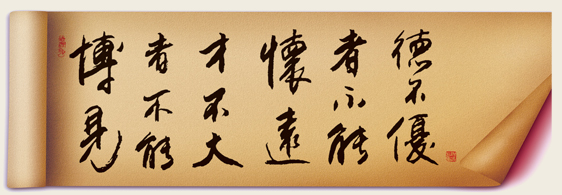 德不優
者不能
懷遠
才不大
者不能
博見